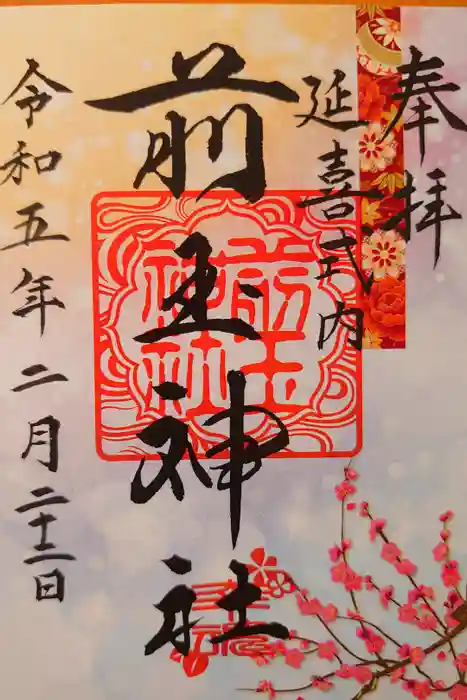 奉拝
延喜式内
前玉神社
前玉
神社
令和五年二月二十二日